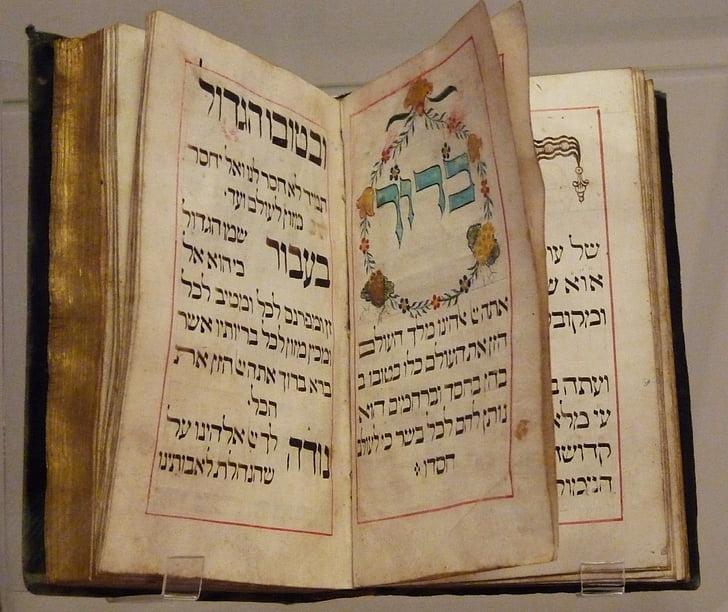 של
ועתה
ברוך
אתה יי אלהינו מלך העולם
הזן את העולם כלו בטובו ב
בחן בחסד וברחמים הוא
נותן לחם לכל בשר כי לעולם
חסדו:
ובטובו הגדול
תמיד לא חסר לנו ואל יחסר
מזון לעולם ועד.
בעבור שמו הגדול
כי הוא אל
זן ומפרנס לכל ומטיב לכל
ומכין מזון לכל בריותיו אשר
ברא ברוך אתה יי הזן את
הכל.
נודה לך יי אלהינו על
שהנחלת לאבותינו